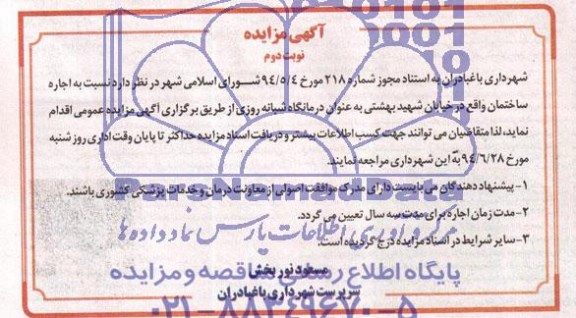 آگهی مزایده
نوبت دوم
شهرداری باغبادران به استناد مجوز شماره ۲۱۸ مورخ ۹۴/۵/۴ شورای اسلامی شهر در نظر دارد نسبت به اجاره
ساختمان واقع در خیابان شهید بهشتی به عنوان درمانگاه شبانه روزی از طریق برگزاری آگهی مزایده عمومی اقدام
نماید، لذا متقاضیان می توانند جهت کسب اطلاعات بیشتر و دریافت اسناد مزایده حداکثر تا پایان وقت اداری روز شنبه
مورخ ۹۴/۶/۲۸ به این شهرداری مراجعه نمایند.
۱- پیشنهاد دهندگان می بایست دارای مدرک موافقت اصولی از معاونت درمان و خدمات پزشکی کشوری باشند.
ParsNamadData
۲- مدت زمان اجاره برای مدت سه سال تعیین می گردد.
مرکز فرآوری اطلاعات پارس نماد داده ها
۳- سایر شرایط در اسناد مزایده درج گردیده است.
پایگاه اطلاع رسانی مناقصه و مزایده
مسعود نوربخش
سرپرست شهرداری باغبادران
۰۲۱-۸۸۳۴۹۶۷۰-۵